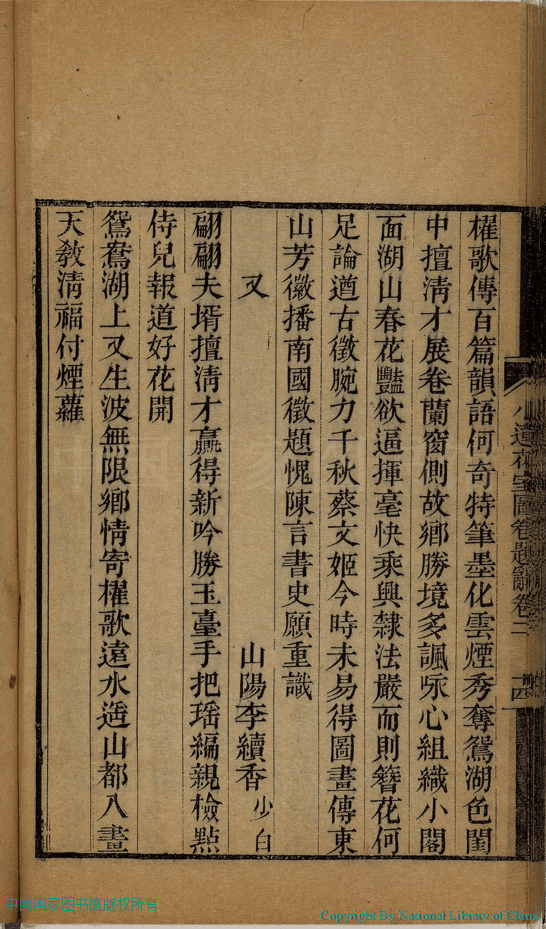 櫂歌傳百篇韻語何奇特筆墨化雲煙秀奪鴛湖色閨
中擅淸才展卷蘭窗側故鄉勝境多諷詠心組織小閣
面湖山春花豔欲逼揮毫快乘興隸法嚴而則簪花何
足論遒古徵腕力千秋蔡文姬今時未易得圖畫傳東
山芳徽播南國徵題愧陳言書史願重識
又 山陽李續香少白
翩翩夫壻擅淸才贏得新吟勝玉臺手把瑶編親檢點
侍兒報道好花開
鴛鴦湖上又生波無限鄉情寄櫂歌遠水遥山都入畫
天敎淸福付煙蘿
圖卷題辭卷二
十四
中国国家图书馆版权所有
Copyright By National Library of China